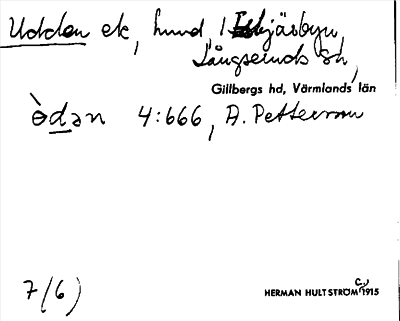 Udden ek, hund, 1
Långseruds sn,
Gillbergs hd, Värmlands län
òdən 4:666, A. Petterson
7/6) HERMAN HULTSTRÖM C. 1915